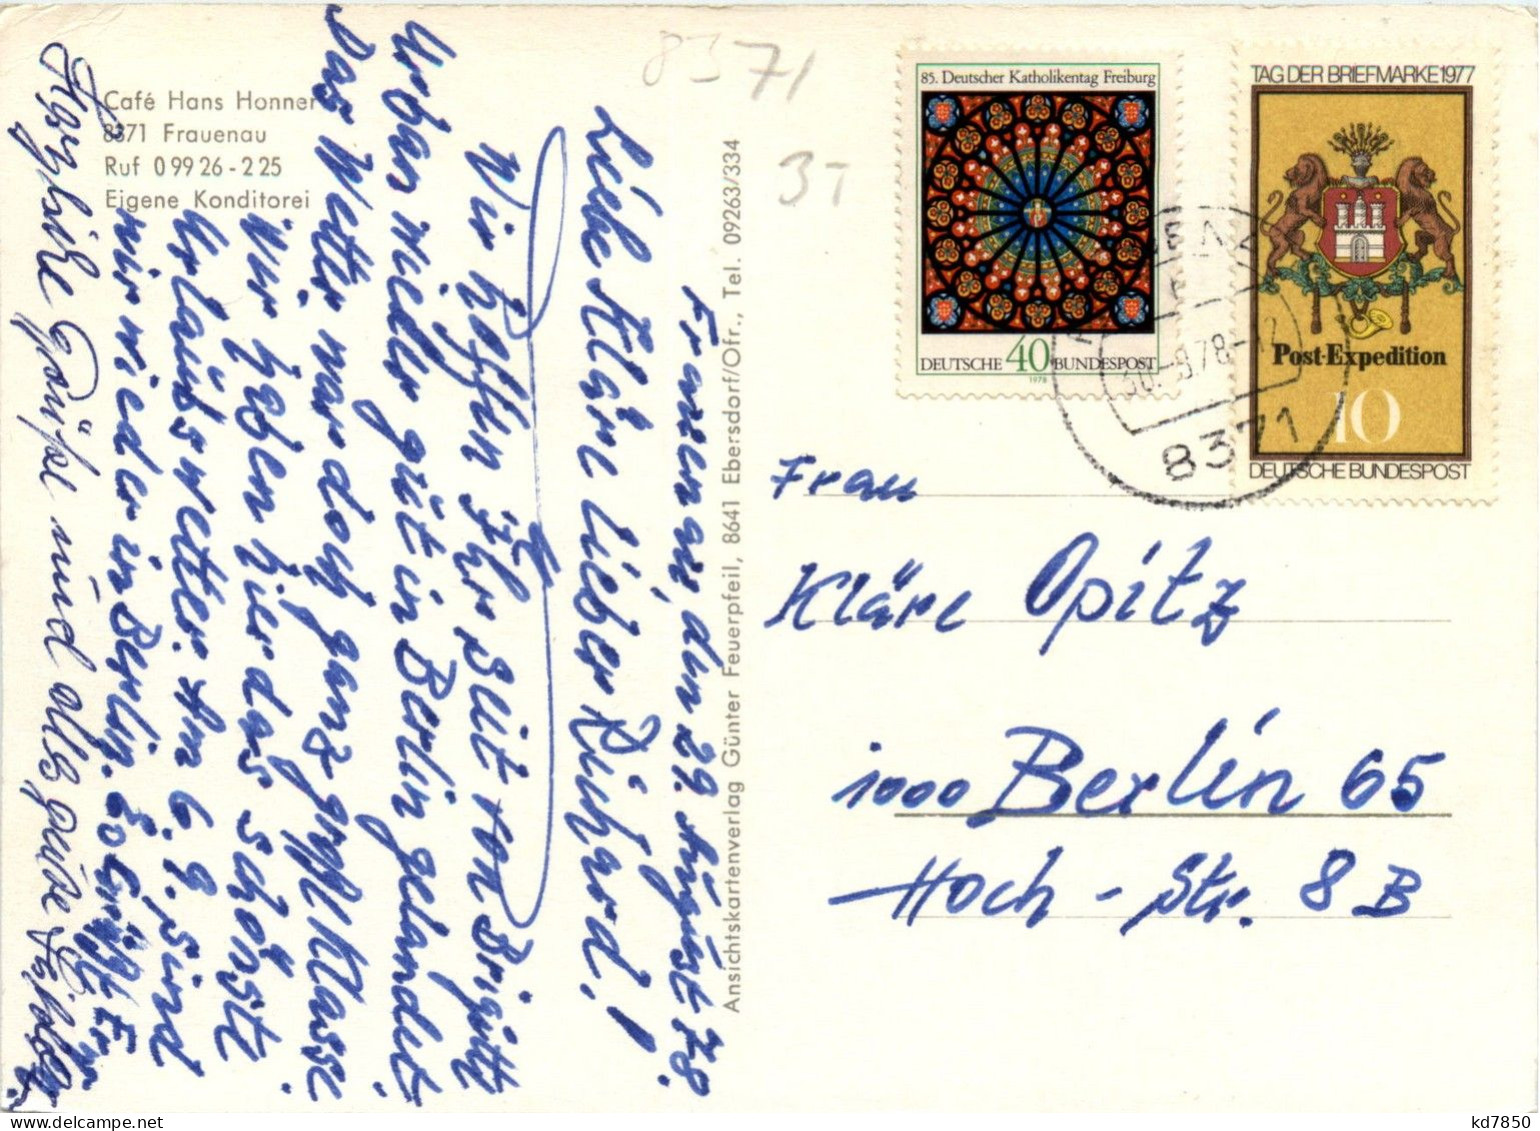 Café Hans Honner
8371 Frauenau
Ruf 0 99 26 - 2 25
Eigene Konditorei
8371
3T
Frauenau, den 29. August 78.
Liebe Kläre lieber Richard!
Wir hoffen Ihr seit von Brigitte
Urban wieder gut in Berlin gelandet
Das Wetter war doch ganz große Klasse
Wir haben hier das schönste
Urlaubswetter. Am 6.9. sind
wir wieder in Berlin. Es grüßt
Herzliche Grüße und alles gute
Ansichtskartenverlag Günter Feuerpfeil, 8641 Ebersdorf/Ofr., Tel. 09263/334
85. Deutscher Katholikentag Freiburg
DEUTSCHE 40 BUNDESPOST
1978
TAG DER BRIEFMARKE 1977
Post-Expedition
10
DEUTSCHE BUNDESPOST
30.-8.78-12
8371
Frau
Kläre Opitz
1000 Berlin 65
Hoch-Str. 8 B
kd7850